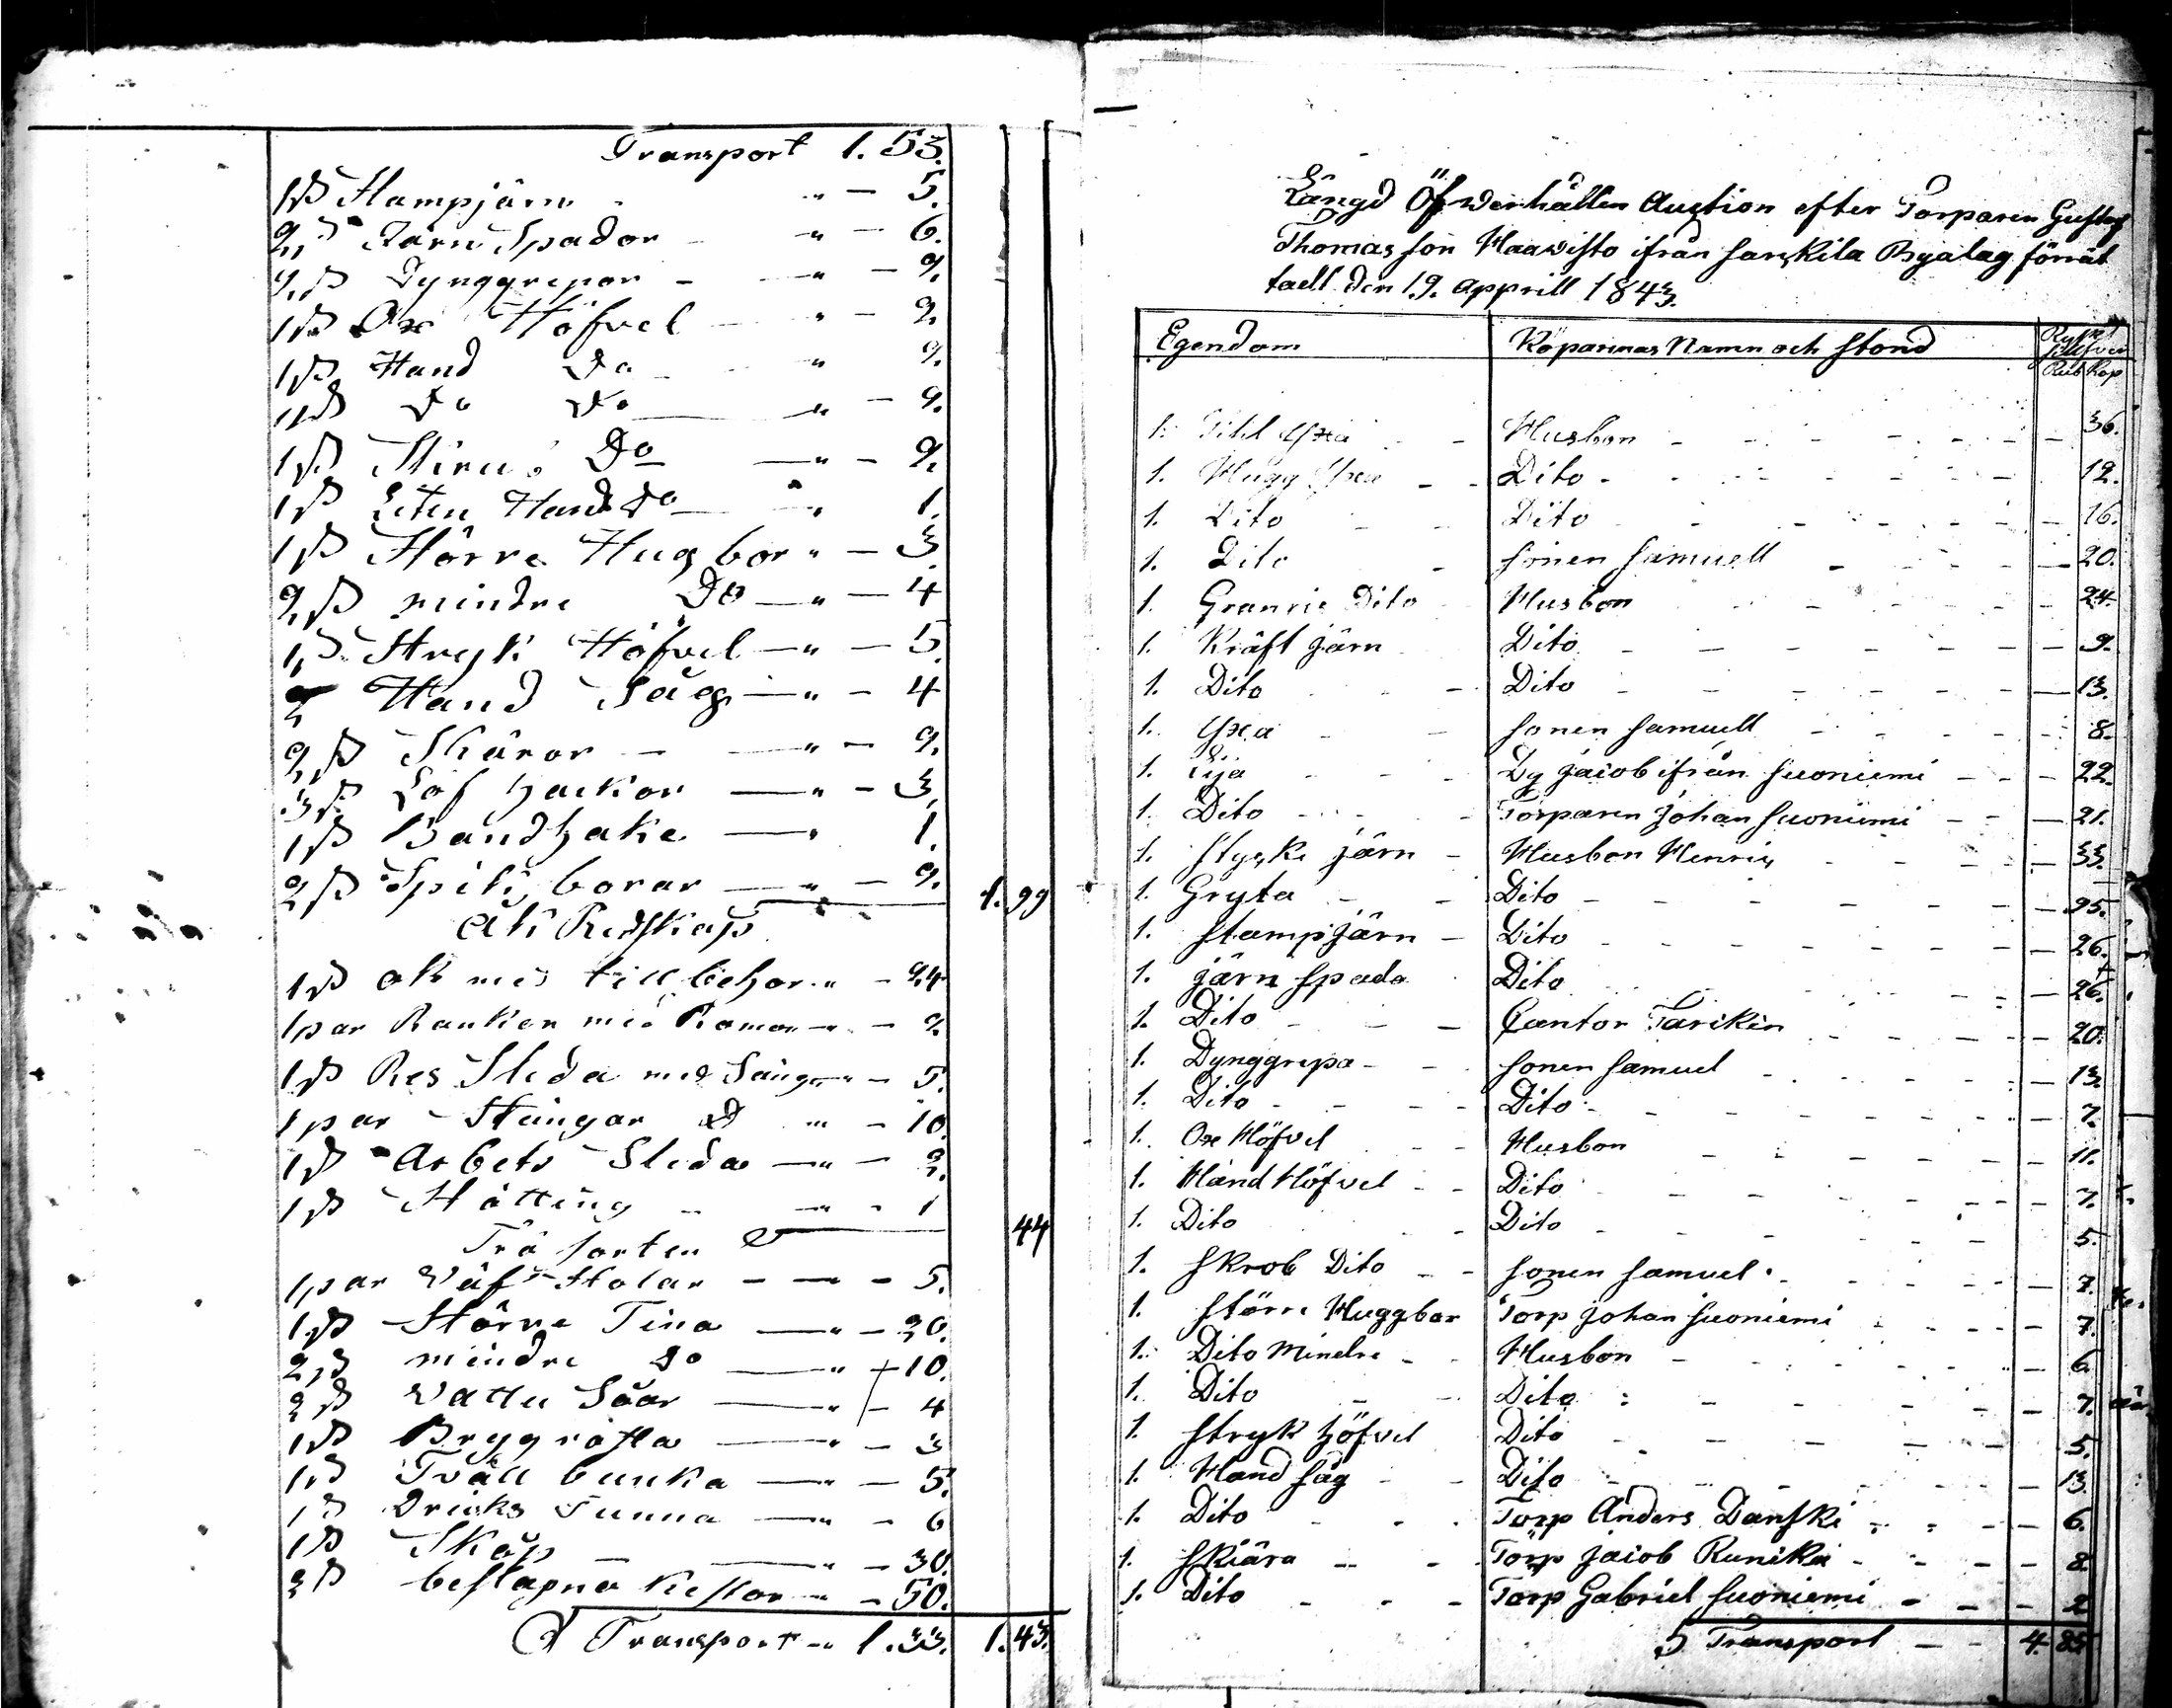 Transport 1. 53.
1 st Stampjärn " — 5.
2 st Järn Spador — " — 6.
2 st Dynggrepar — " — 2.
1 st Oxe Höfvel — " — 2
1 st Hand Do — " 2.
1 st Do Do — " — 2.
1 st Do — " — 2.
1 st Liten Hand Do — " 1.
1 st Större Hugbor " — 3
2 st mindre Do — " — 4
1 st Stryk Höfvel — " — 5.
2 Hand Såg — " — 4
2 st Skäror — — " — 2.
3 st Löf hackor — " — 3.
1 st Bandhake — " 1.
2 st Spik borar — " — 2. 1. 99
Åk Redskap
1 st åk med tillbehör " — 24
1 par Rankor med Remar — " — 2.
1 st Res Sleda med " — 5.
1 par Stängar " — 10.
1 st Arbets Sleda — " — 2.
1 st Hätting — " — 1 44
Trä Sorter
1 par Väf Stolar — — — 5.
1 st Större Tina — " — 20.
2 st mindre do — " 10.
2 st Vatten Såar — " — 4
1 st Brygg — " — 3
1 st Tväll bunka — " — 5.
1 st Dricks Tunna — " — 6
1 st Skåp — — — 30.
2 st beslagna Kistor — " — 50.
Transport — " 1. 33. 1. 43.
Längd Öfwerhållen Auction efter Torparen Gustaf
Thomas son Haavisto ifrån Sarkila Byalag förrät
tadt den 19. apprill 1843.
Egendom Köparnas Namn och Stond
Rub Kop
1. Yxa — — Husbon — — 36.
1. Hugg Yxa — — Dito — — 12.
1. Dito — — Dito — — 16.
1. Dito — Sonen Samuell — — 20.
1. Granris Dito Husbon — — 24.
1. Kräft järn Dito — — 9.
1. Dito — Dito — — 13.
1. Yxa — — Sonen Samuell — — 8.
1. Lija — — Dy Jacob ifrån Suoniemi — — 22.
1. Dito — — Torparen Johan Suoniemi — — 21.
1. Styske järn — Husbon Henric — — 33.
1. Gryta — — Dito — — 95.
1. Stampjärn — Dito — — 26.
1. järn Spada Dito — — 26.
1. Dito — — Cantor Tarikin — — 20.
1. Dynggrepa — Sonen Samuel — — 13.
1. Dito — — Dito — — 7.
1. Oxe Höfvel — Husbon — — 11.
1. Hand Höfvel — — Dito — — 7.
1. Dito — Dito — — 5.
1. Skrob Dito — — Sonen Samuel — — 7.
1. Störri Huggbar Torp Johan Suoniemi — — 7.
1. Dito Mindre — Husbon — — 6.
1. Dito — — Dito — — 7.
1. Stryk höfvel Dito — — 5.
1. Hand såg — — Dito — — 13.
1. Dito — — Torp Anders Danski — — 6.
1. Skiära — — Torp Jacob Runika — — 8.
1. Dito — — Torp Gabriel Suoniemi — — 2
Transport — — 4. 85